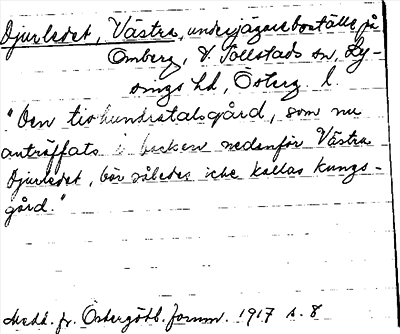 Djurledet, Västra, underjägareboställe på
Omberg, V. Tollstads sn, Ly-
sings hd, Österg l.
"Den tiohundratalsgård, som nu
anträffats i backen nedanför Västra
Djurledet, bör således icke kallas kungs-
gård."
Medd. fr. Östergötl. fornm. 1917 s. 8